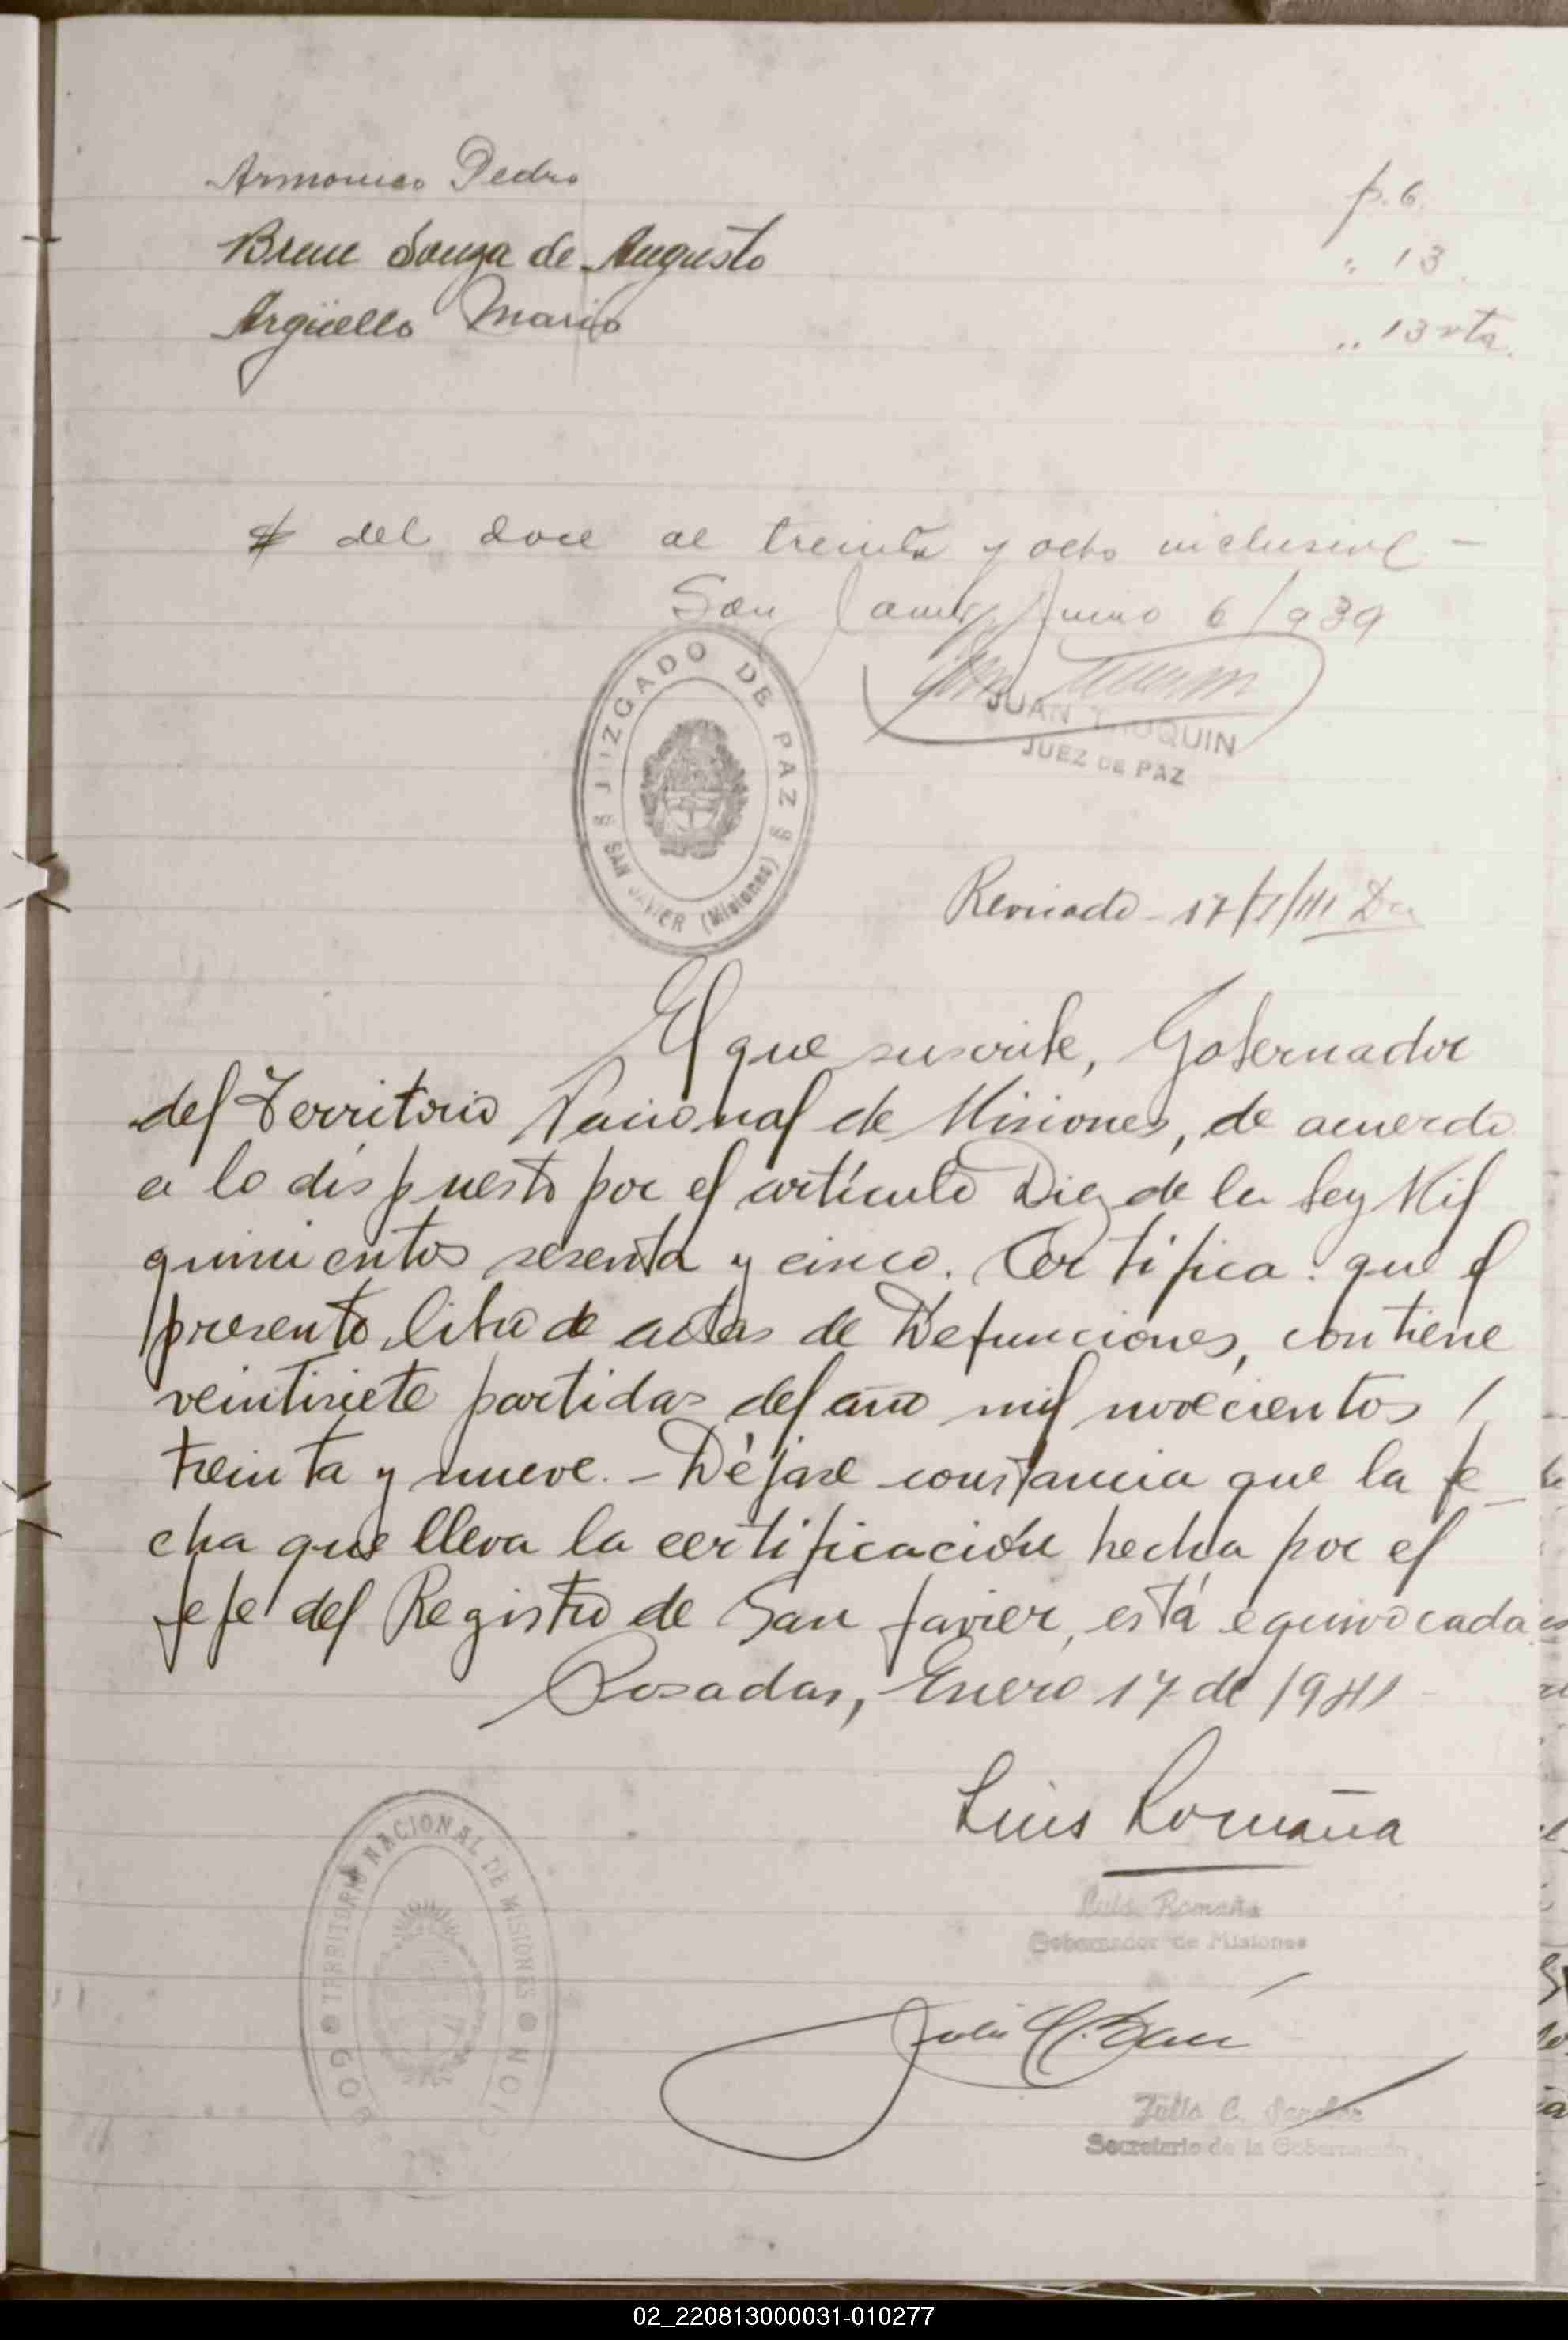 Armonico Pedro p. 6.
Brem Souza de Augusto " 13.
Argüello Mario " 13 vta.
del doce al treinta y ocho inclusive. -
San Javier, Junio 6/939
JUZGADO DE PAZ
SAN JAVIER (Misiones)
JUAN
JUEZ DE PAZ
Revisado - 17/I/41
El que suscribe, Gobernador
del Territorio Nacional de Misiones, de acuerdo
a lo dispuesto por el artículo Diez de la Ley Mil
quinientos sesenta y cinco. Certifica: que el
presente libro de actas de Defunciones, contiene
veintisiete partidas del año mil novecientos /
treinta y nueve. - Déjase constancia que la fe_
cha que lleva la certificación hecha por el
Jefe del Registro de San Javier, está equivocada.
Posadas, Enero 17 de 1941 -
Luis Romaña
Luis Romaña
Gobernador de Misiones
TERRITORIO NACIONAL DE MISIONES
Julio C. Sanchez
Secretario de la Gobernación
02_220813000031-010277